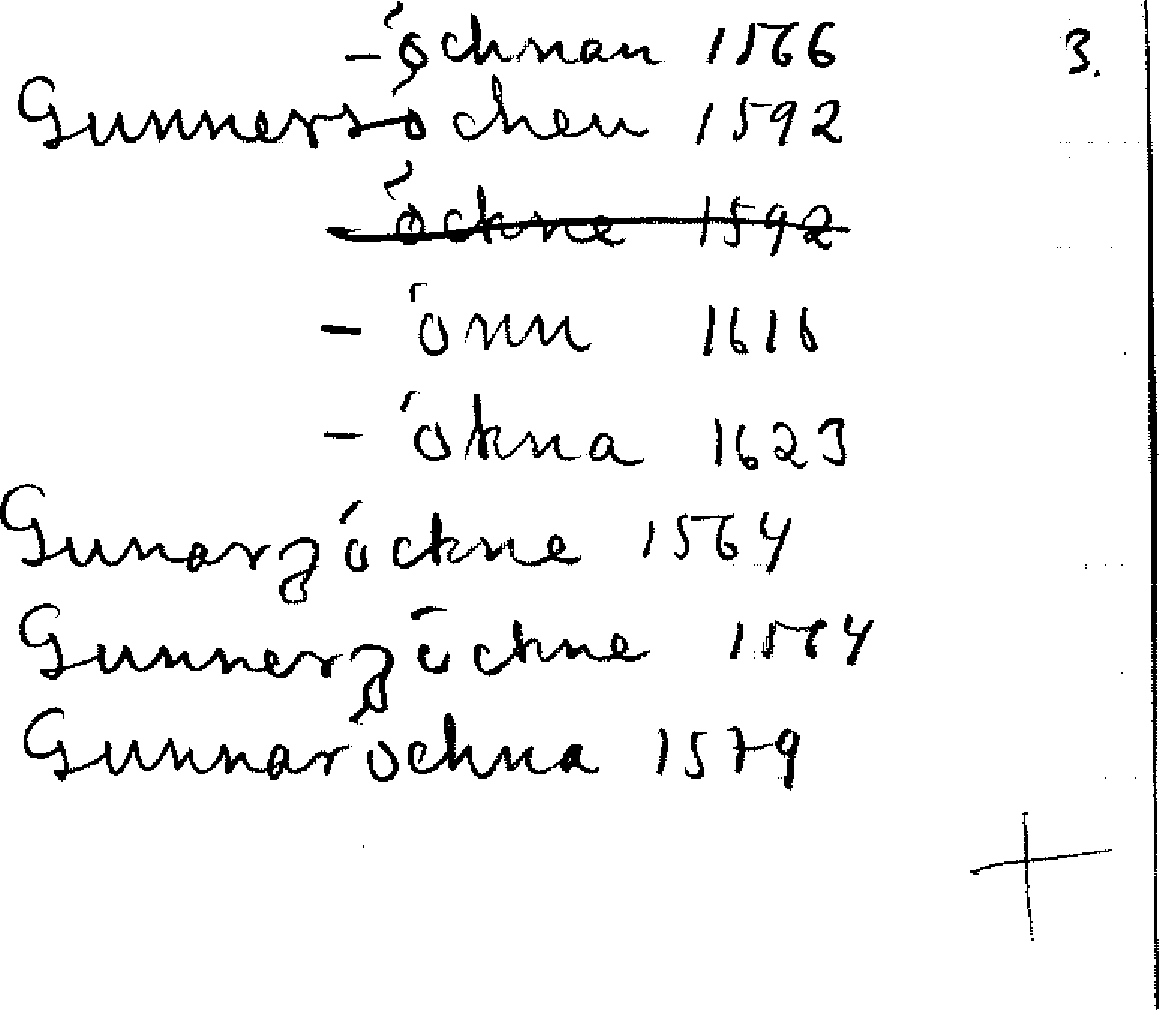 -öchnan 1566 3.
Gunnersochen 1592
-öckne 1592
- önn 1616
- ökna 1623
Gunarzöckne 1564
Gunnerzöckne 1564
Gunnaröchna 1579